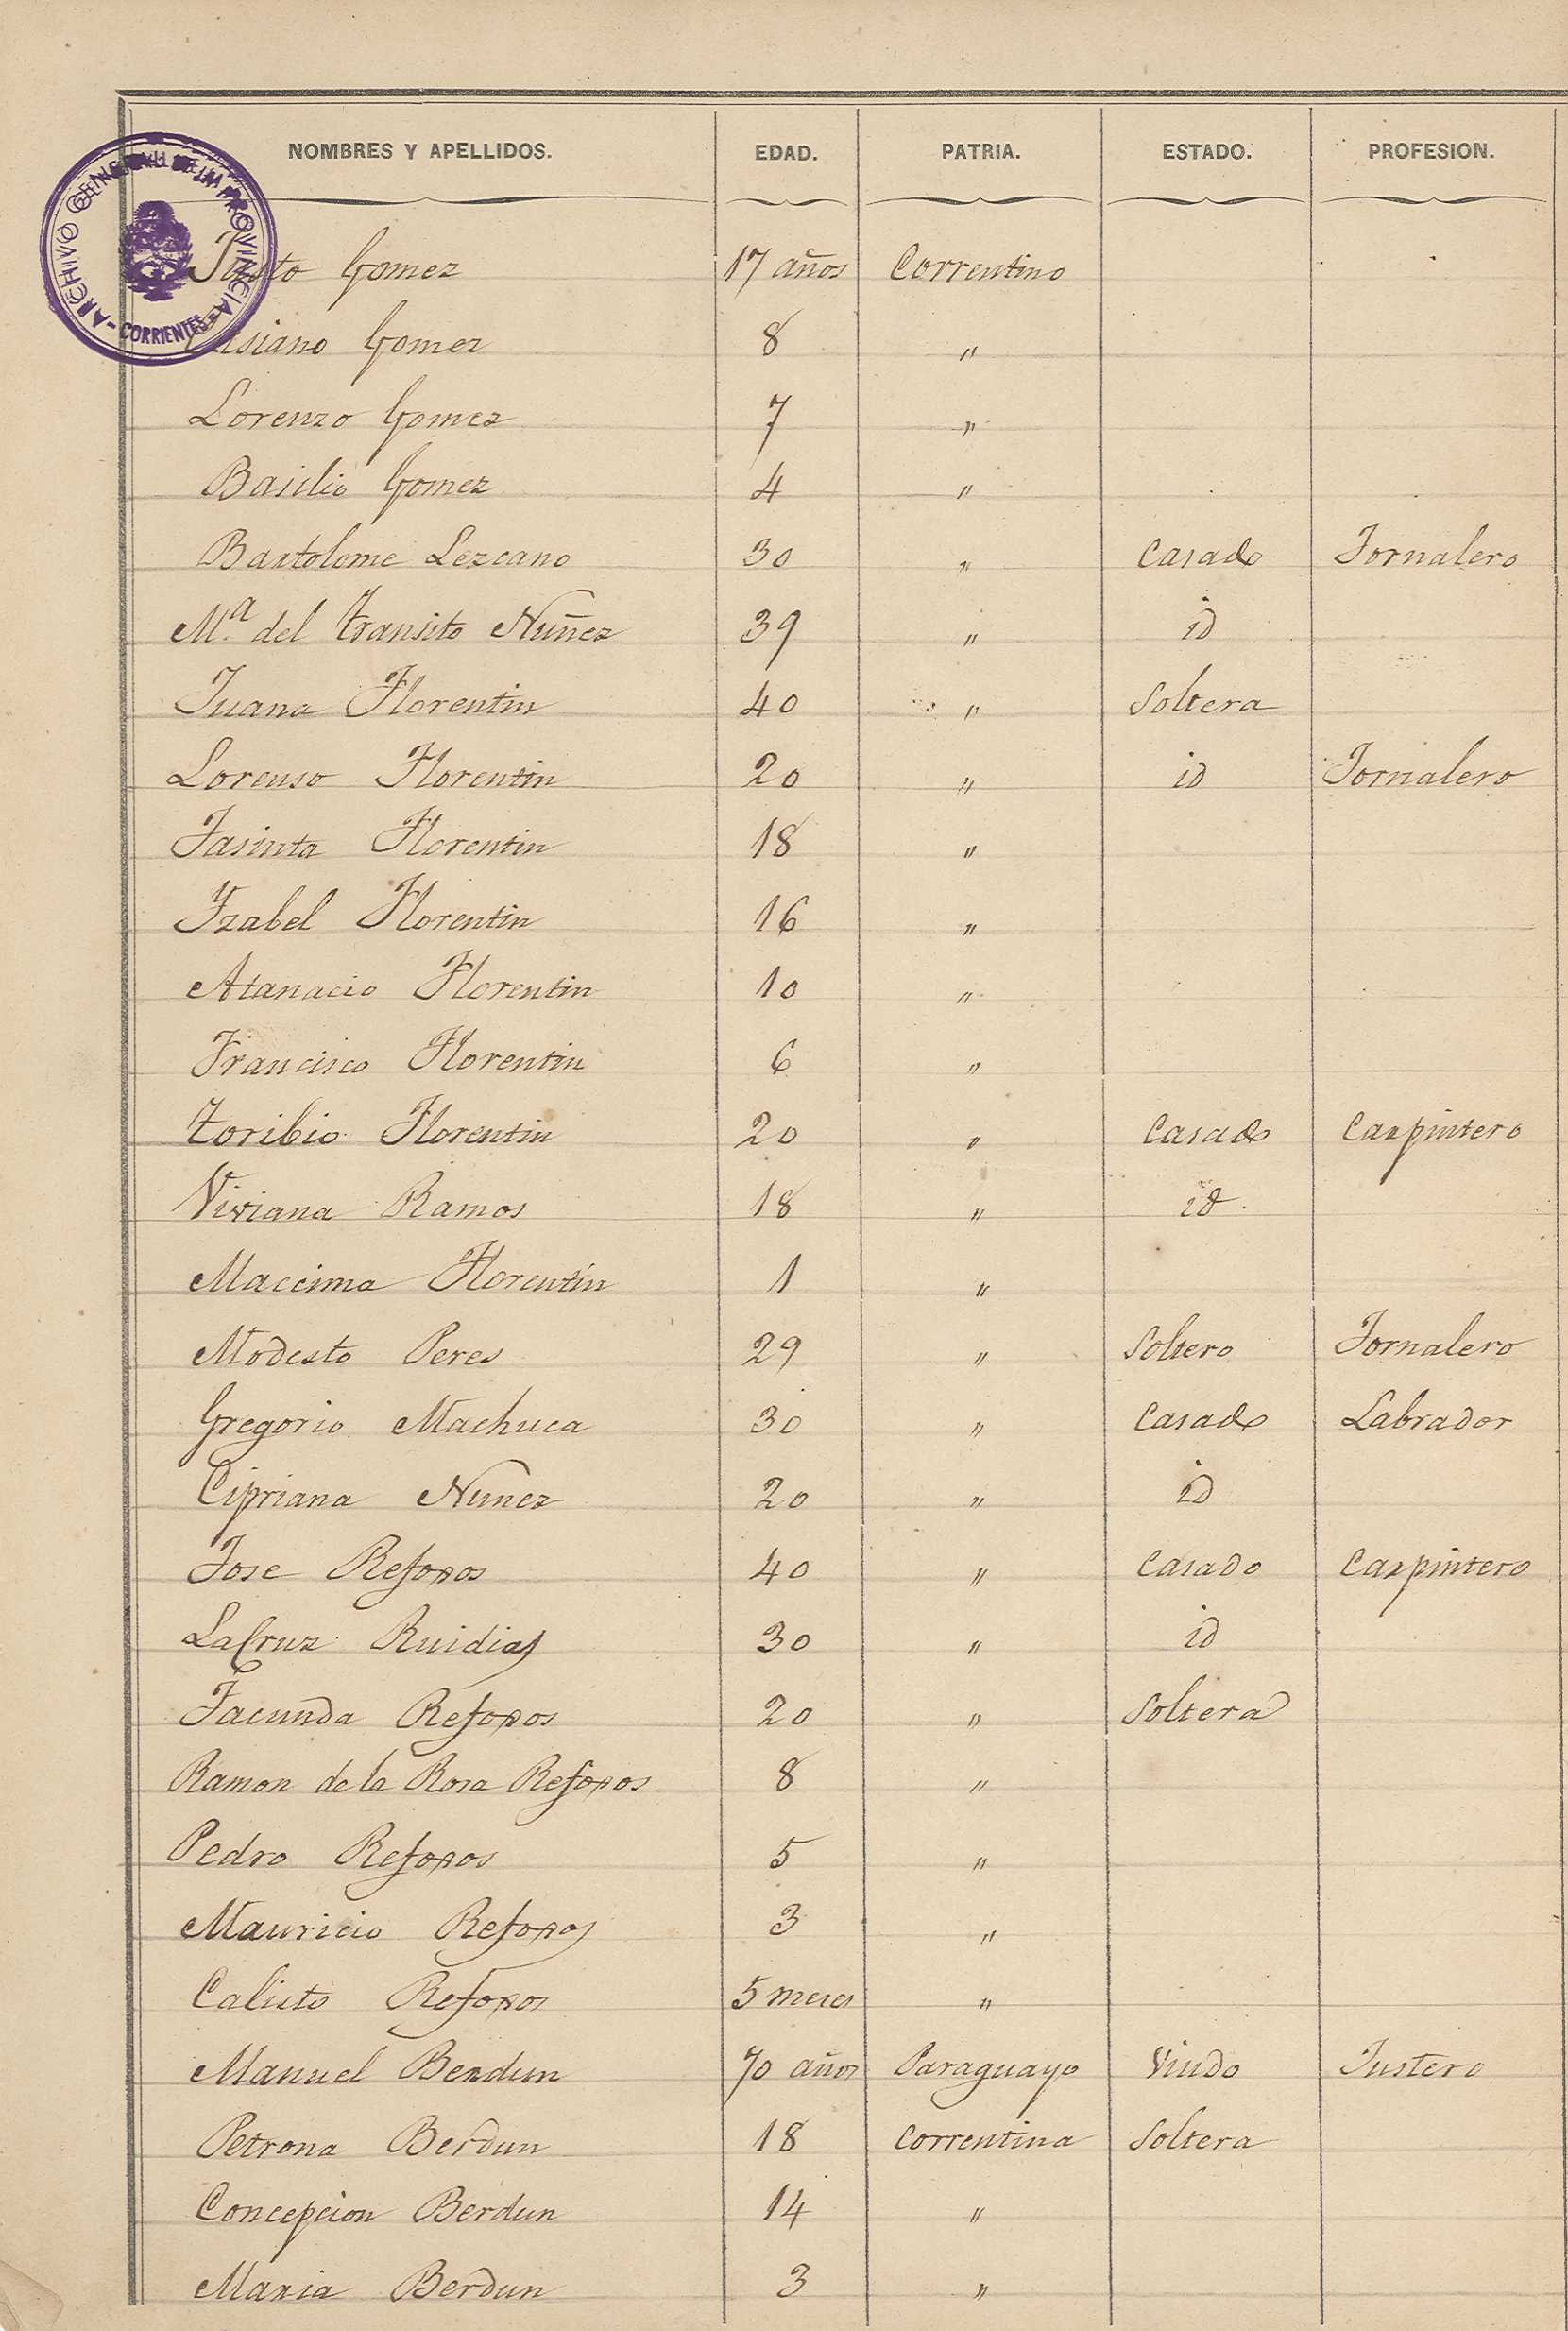 NOMBRES Y APELLIDOS. EDAD. PATRIA. ESTADO. PROFESION.
ARCHIVO GENERAL DE LA PROVINCIA - CORRIENTES -
Justo Gomez 17 años Correntino
Gomez 8 "
Lorenzo Gomez 7 "
Basilio Gomez 4 "
Bartolome Lezcano 30 " Casado Jornalero
Mª. del Transito Nuñez 39 " id
Juana Florentin 40 " Soltera
Lorenso Florentin 20 " id Jornalero
Jasinta Florentin 18 "
Yzabel Florentin 16 "
Atanacio Florentin 10 "
Francisco Florentin 6 "
Toribio Florentin 20 " Casado Carpintero
Viviana Ramos 18 " id
Maccima Florentin 1 "
Modesto Peres 29 " Soltero Jornalero
Gregorio Machuca 30 " Casado Labrador
Cipriana Nunez 20 " id
Jose Refojos 40 " Casado Carpintero
LaCruz Ruidias 30 " id
Facunda Refojos 20 " Soltera
Ramon de la Rosa Refojos 8 "
Pedro Refojos 5 "
Mauricio Refojos 3 "
Calisto Refojos 5 meses "
Manuel Berdun 70 años Paraguayo Viudo Justero
Petrona Berdun 18 Correntina Soltera
Concepcion Berdun 14 "
Maria Berdun 3 "